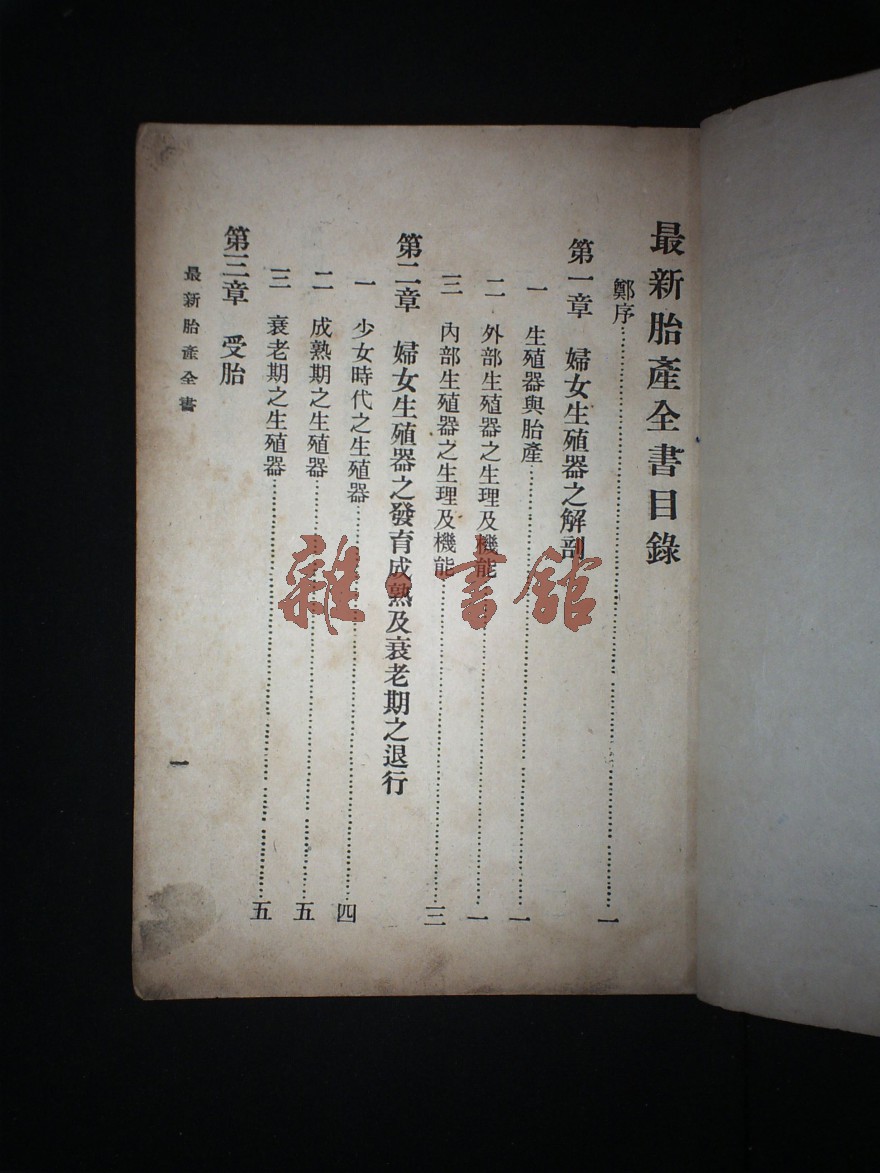 最新胎產全書目錄
鄭序……一
第一章 婦女生殖器之解剖
一 生殖器與胎產……一
二 外部生殖器之生理及機能……一
三 內部生殖器之生理及機能……三
第二章 婦女生殖器之發育成熟及衰老期之退行
一 少女時代之生殖器……四
二 成熟期之生殖器……五
三 衰老期之生殖器……五
第三章 受胎
最新胎產全書
一
雜書館